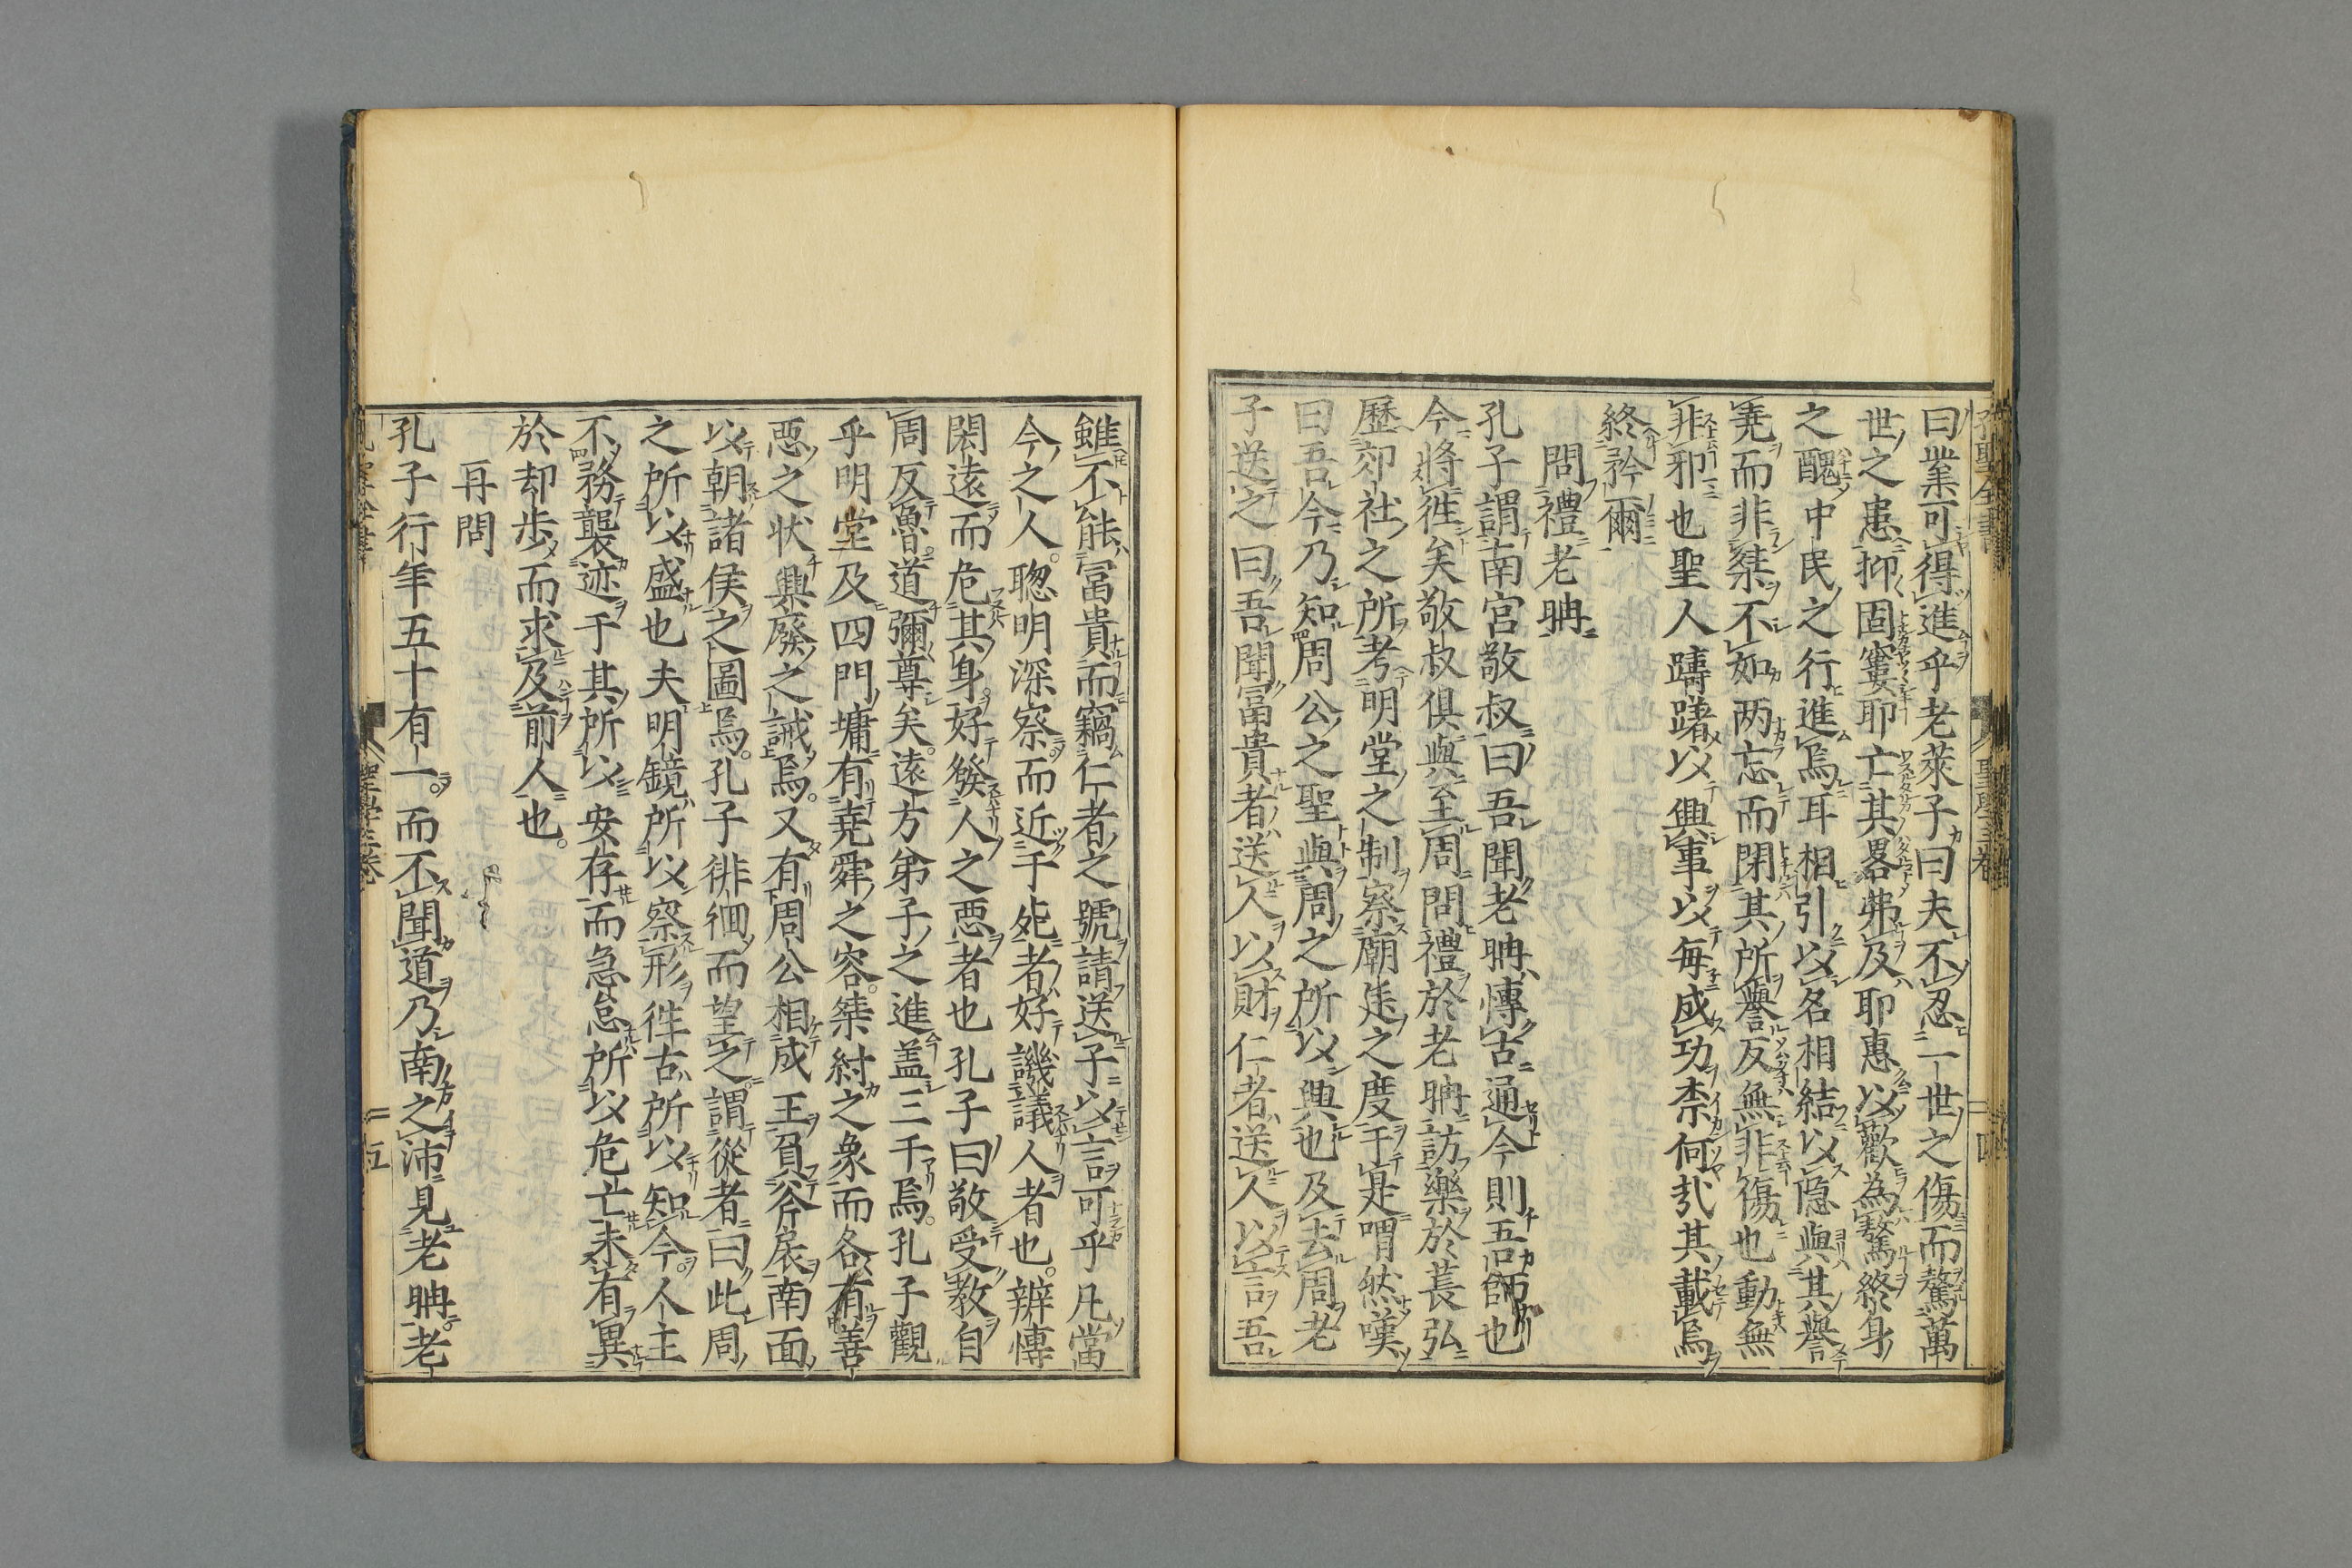 曰業可得進乎老萊子曰夫不忍一世之傷而驁萬
世之患抑固窶耶亡其畧弗及耶惠以歡為驁終身
之醜中民之行進焉耳相引以名相結以隠與其譽
堯而非桀不如两忘而閉其所譽反無非傷也動無
非邪也聖人躊躇以興事以每成功柰何㢤其載焉
終矜爾
問禮老聃
孔子謂南宮敬叔曰吾聞老聃慱古通今則吾師也
今將徃矣敬叔俱與至周問禮於老聃訪樂於萇弘
歷郊社之所考明堂之制察廟廷之度于是喟然嘆
曰吾今乃知周公之聖與周之所以興也及去周老
子送之曰吾聞冨貴者送人以財仁者送人以言吾
雖不能冨貴而竊仁者之號請送子以言可乎凡當
今之人聰明深察而近于死者好譏議人者也辨慱
閎遠而危其身好發人之惡者也孔子曰敬受教自
周反魯道彌尊矣遠方弟子之進盖三千焉孔子觀
乎明堂及四門墉有堯舜之容桀紂之象而各有善
惡之状興廢之誡焉又有周公相成王負斧扆南面
以朝諸侯之圖焉孔子徘徊而望之謂從者曰此周
之所以盛也夫明鏡所以察形徃古所以知今人主
不務襲迹于其所以安存而急怠所以危亡未有異
於却步而求及前人也
再問
孔子行年五十有一而不聞道乃南之沛見老聃老